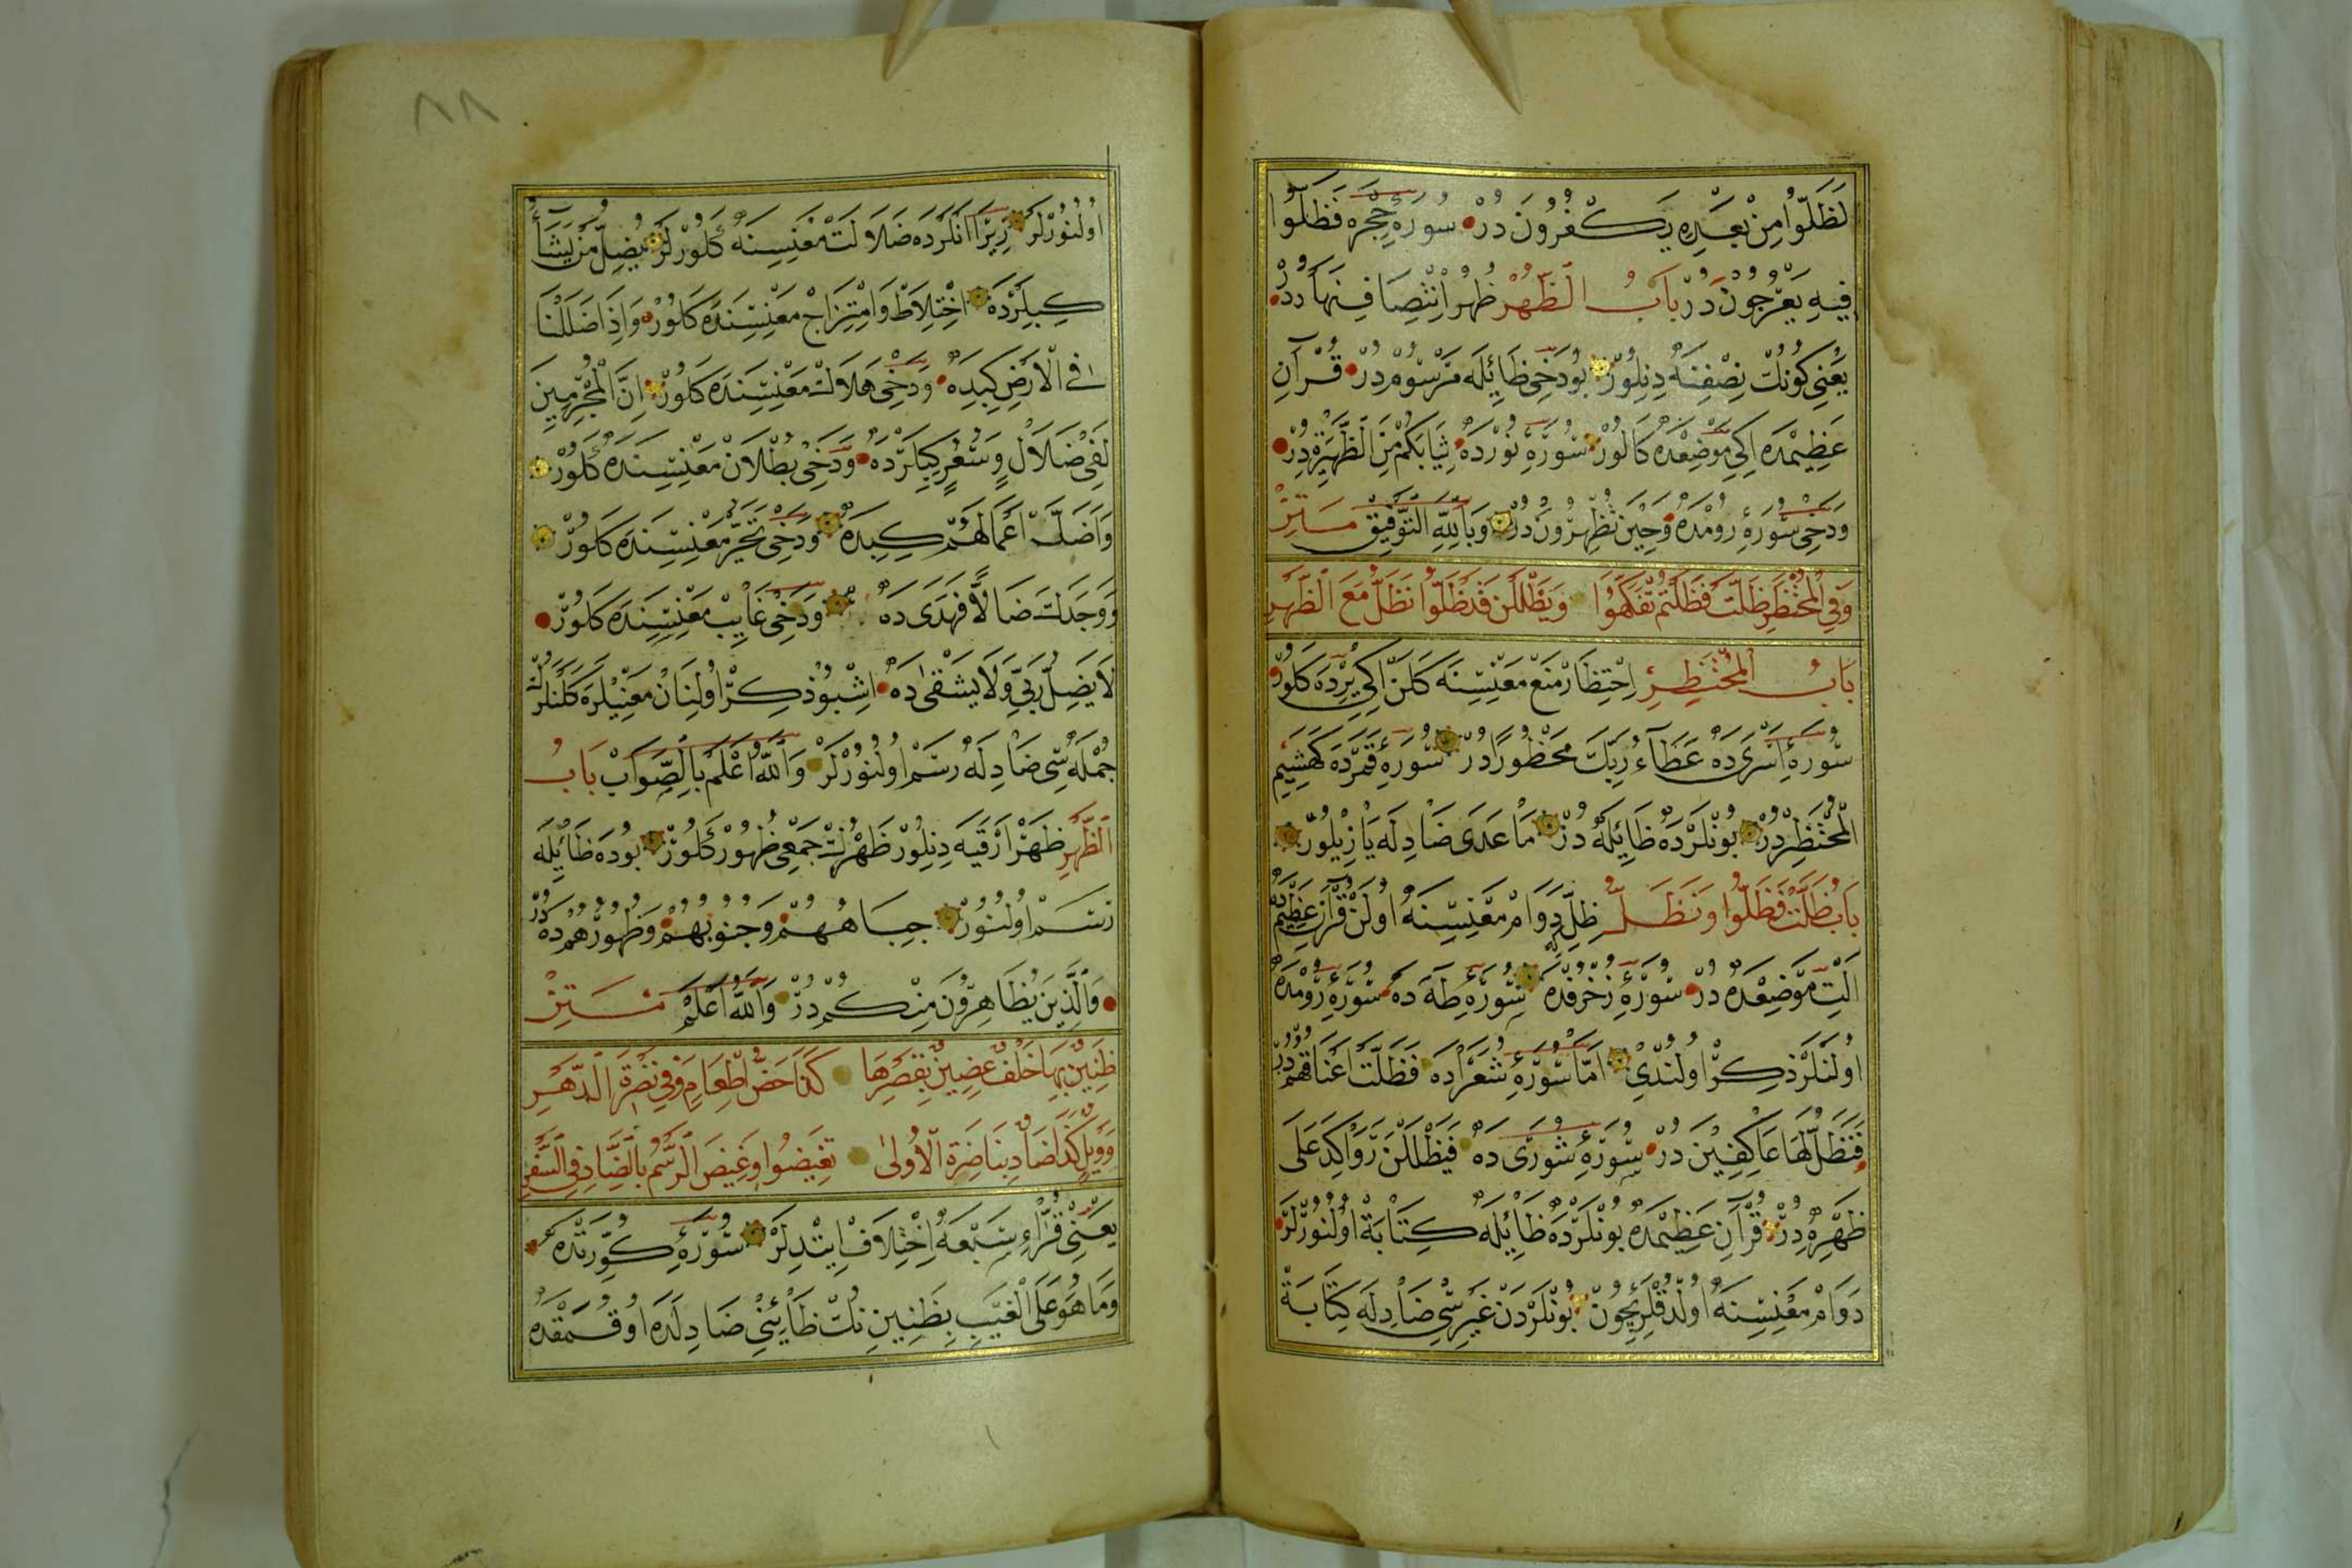 لَظَلُّوا مِنْ بَعْدِهِ يَكْفُرُونَ دُرْ سُورَهِٔ حِجْرْدَه فَظَلُّوا
فِيهِ يَعْرُجُونَ دُرْ بَابُ الظُّهْرِ ظُهْر اِنْتِصَافِ نَهَارْدُرْ
يَعْنِى كُونُكْ نِصْفِنَه دِنِلُورْ بُودَخِى ظَائِلَه مَرْسُومْ دُرْ قُرْآنِ
عَظِيمْدَه اِكِى مَوْضِعْدَه كَلُورْ سُورَهِٔ نُورْدَه ثِيَابَكُمْ مِنَ الظَّهِيرَةِ دُرْ
وَدَخِى سُورَهِٔ رُومْدَه وَحِينَ تُظْهِرُونَ دُرْ وَبِاللّٰهِ التَّوْفِيقْ مَتِنْ
وَفِى الْمُحْتَظِرْ ظَلْتَ فَظَلْتُمْ تَفَكَّهُوا وَيَظْلَلْنَ قَدْ ظَلُّوا نَظَلُّ مَعَ الظَّهْرِ
بَابُ الْمُحْتَظِرِ اِحْتِظَارْ مَنْعْ مَعْنِسِنَه كَلَنْ اِكِى يِرْدَه كَلُورْ
سُورَهِٔ اِسْرَى دَه عَطَاءُ رَبِّكَ مَحْظُورًا دُرْ سُورَهِٔ قَمَرْدَه كَهَشِيمِ
الْمُحْتَظِرْ دُرْ بُونْلَرْدَه ظَائِلَه دُرْ مَا عَدَى ضَادِلَه يَازِيلُورْ
بَابُ ظَلْتَ فَظَلُّوا وَنَظَلُّ ظِلّ دَوَامْ مَعْنِسِنَه اُولَنْ قُرْآنِ عَظِيمْدَه
اَلْتِ مَوْضِعْدَه دُرْ سُورَهِٔ زُخْرُفْدَه سُورَهِٔ طٰهَ دَه سُورَهِٔ رُومْدَه
اُولَنْلَرْ ذِكِرْ اُولُنْدِى اَمَّا سُورَهِٔ شُعَرَادَه فَظَلَّتْ اَعْنَاقُهُمْ دُرْ
فَنَظَلُّ لَهَا عَاكِفِينَ دُرْ سُورَهِٔ شُورَى دَه فَيَظْلَلْنَ رَوَاكِدَ عَلَى
ظَهْرِهِ دُرْ قُرْآنِ عَظِيمْدَه بُونْلَرْدَه ظَائِلَه كِتَابَةْ اُولُنُورْلَرْ
دَوَامْ مَعْنِسِنَه اُولْدُقْلَرِيچُونْ بُونْلَرْدَنْ غَيْرِسِى ضَادِلَه كِتَابَةْ
٨٨
اُولُنُورْلَرْ زِيرَا انْلَرْدَه ضَلَالَتْ مَعْنِسِنَه كَلُورْلَرْ يُضِلُّ مَنْ يَشَاءُ
كِبِلَرْدَه اِخْتِلَاطْ وَامْتِزَاجْ مَعْنِسِنَدَه كَلُورْ وَاِذَا ضَلَلْنَا
فِى الْاَرْضِ كِبِدَه وَدَخِى هَلَاكْ مَعْنِسِنَدَه كَلُورْ اِنَّ الْمُجْرِمِينَ
لَفِى ضَلَالٍ وَسُعُرٍ كِبِلَرْدَه وَدَخِى بُطْلَانْ مَعْنِسِنَدَه كَلُورْ
وَاَضَلَّ اَعْمَالَهُمْ كِبِدَه وَدَخِى تَحَيُّرْ مَعْنِسِنَدَه كَلُورْ
وَوَجَدَكَ ضَالًّا فَهَدَى دَه وَدَخِى غَايِبْ مَعْنِسِنَدَه كَلُورْ
لَا يَضِلُّ رَبِّى وَلَا يَشْقٰى دَه اِشْبُو ذِكِرْ اُولِنَانْ مَعْنِيلَرَه كَلَنْلَرُكْ
جُمْلَه سِى ضَادِلَه رَسْمْ اُولُنُورْلَرْ وَاللّٰهُ اَعْلَمُ بِالصَّوَابْ بَابُ
الظَّهْرِ ظَهْر اَرْقَيَه دِنِلُورْ ظَهْرُكْ جَمْعِى ظُهُورْ كَلُورْ بُودَه ظَائِلَه
رَسْمْ اُولُنُورْ جِبَاهُهُمْ وَجُنُوبُهُمْ وَظُهُورُهُمْ دَه دُرْ
وَالَّذِينَ يُظَاهِرُونَ مِنْكُمْ دُرْ وَاللّٰهُ اَعْلَمُ مَتِنْ
ظَنِينٌ بِهَا خُلْفٌ عِضِينَ بِقَصْرِهَا كَذَا حَضُّ اِطْعَامٍ وَفِى نَضْرَةِ الدَّهْرِ
وَوَيْلٌ كَذَا ضَادٌ بِنَاضِرَةِ الْاُولٰى تَغِيضُ وَغِيضَ الرَّسْمُ بِالضَّادِ فِى السَّفْرِ
يَعْنِى قُرَّاءِ سَبْعَه اِخْتِلَافْ اِيتْدِلَرْ سُورَهِٔ كُوِّرَتْدَه كِ
وَمَا هُوَ عَلَى الْغَيْبِ بِظَنِينٍ نُكْ ظَائِنِى ضَادِلَه اُوقُمَقْدَه